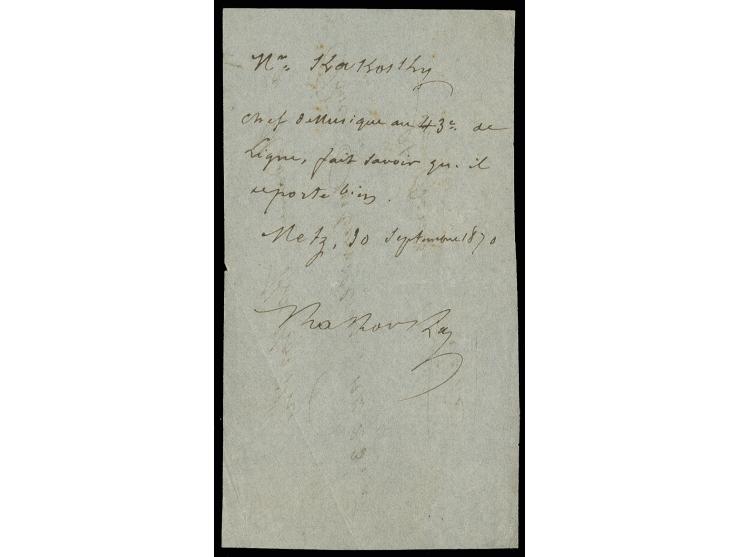 Mr. Kakosky
chef de Musique au 43e. de
Ligne, fait savoir qu'il
se porte bien.
Metz, 20 Septembre 1870